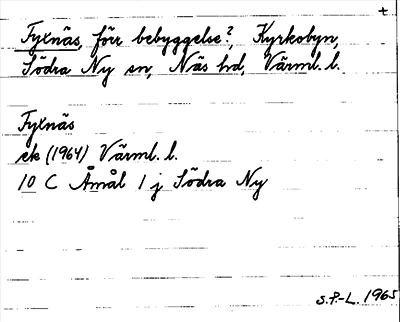 +
Fyxnäs, förr bebyggelse?, Kyrkobyn,
Södra Ny sn, Näs hd, Värml. l.
Fyxnäs
ek (1964) Värml. l.
10 C Åmål 1 j Södra Ny
S.P.-L. 1965